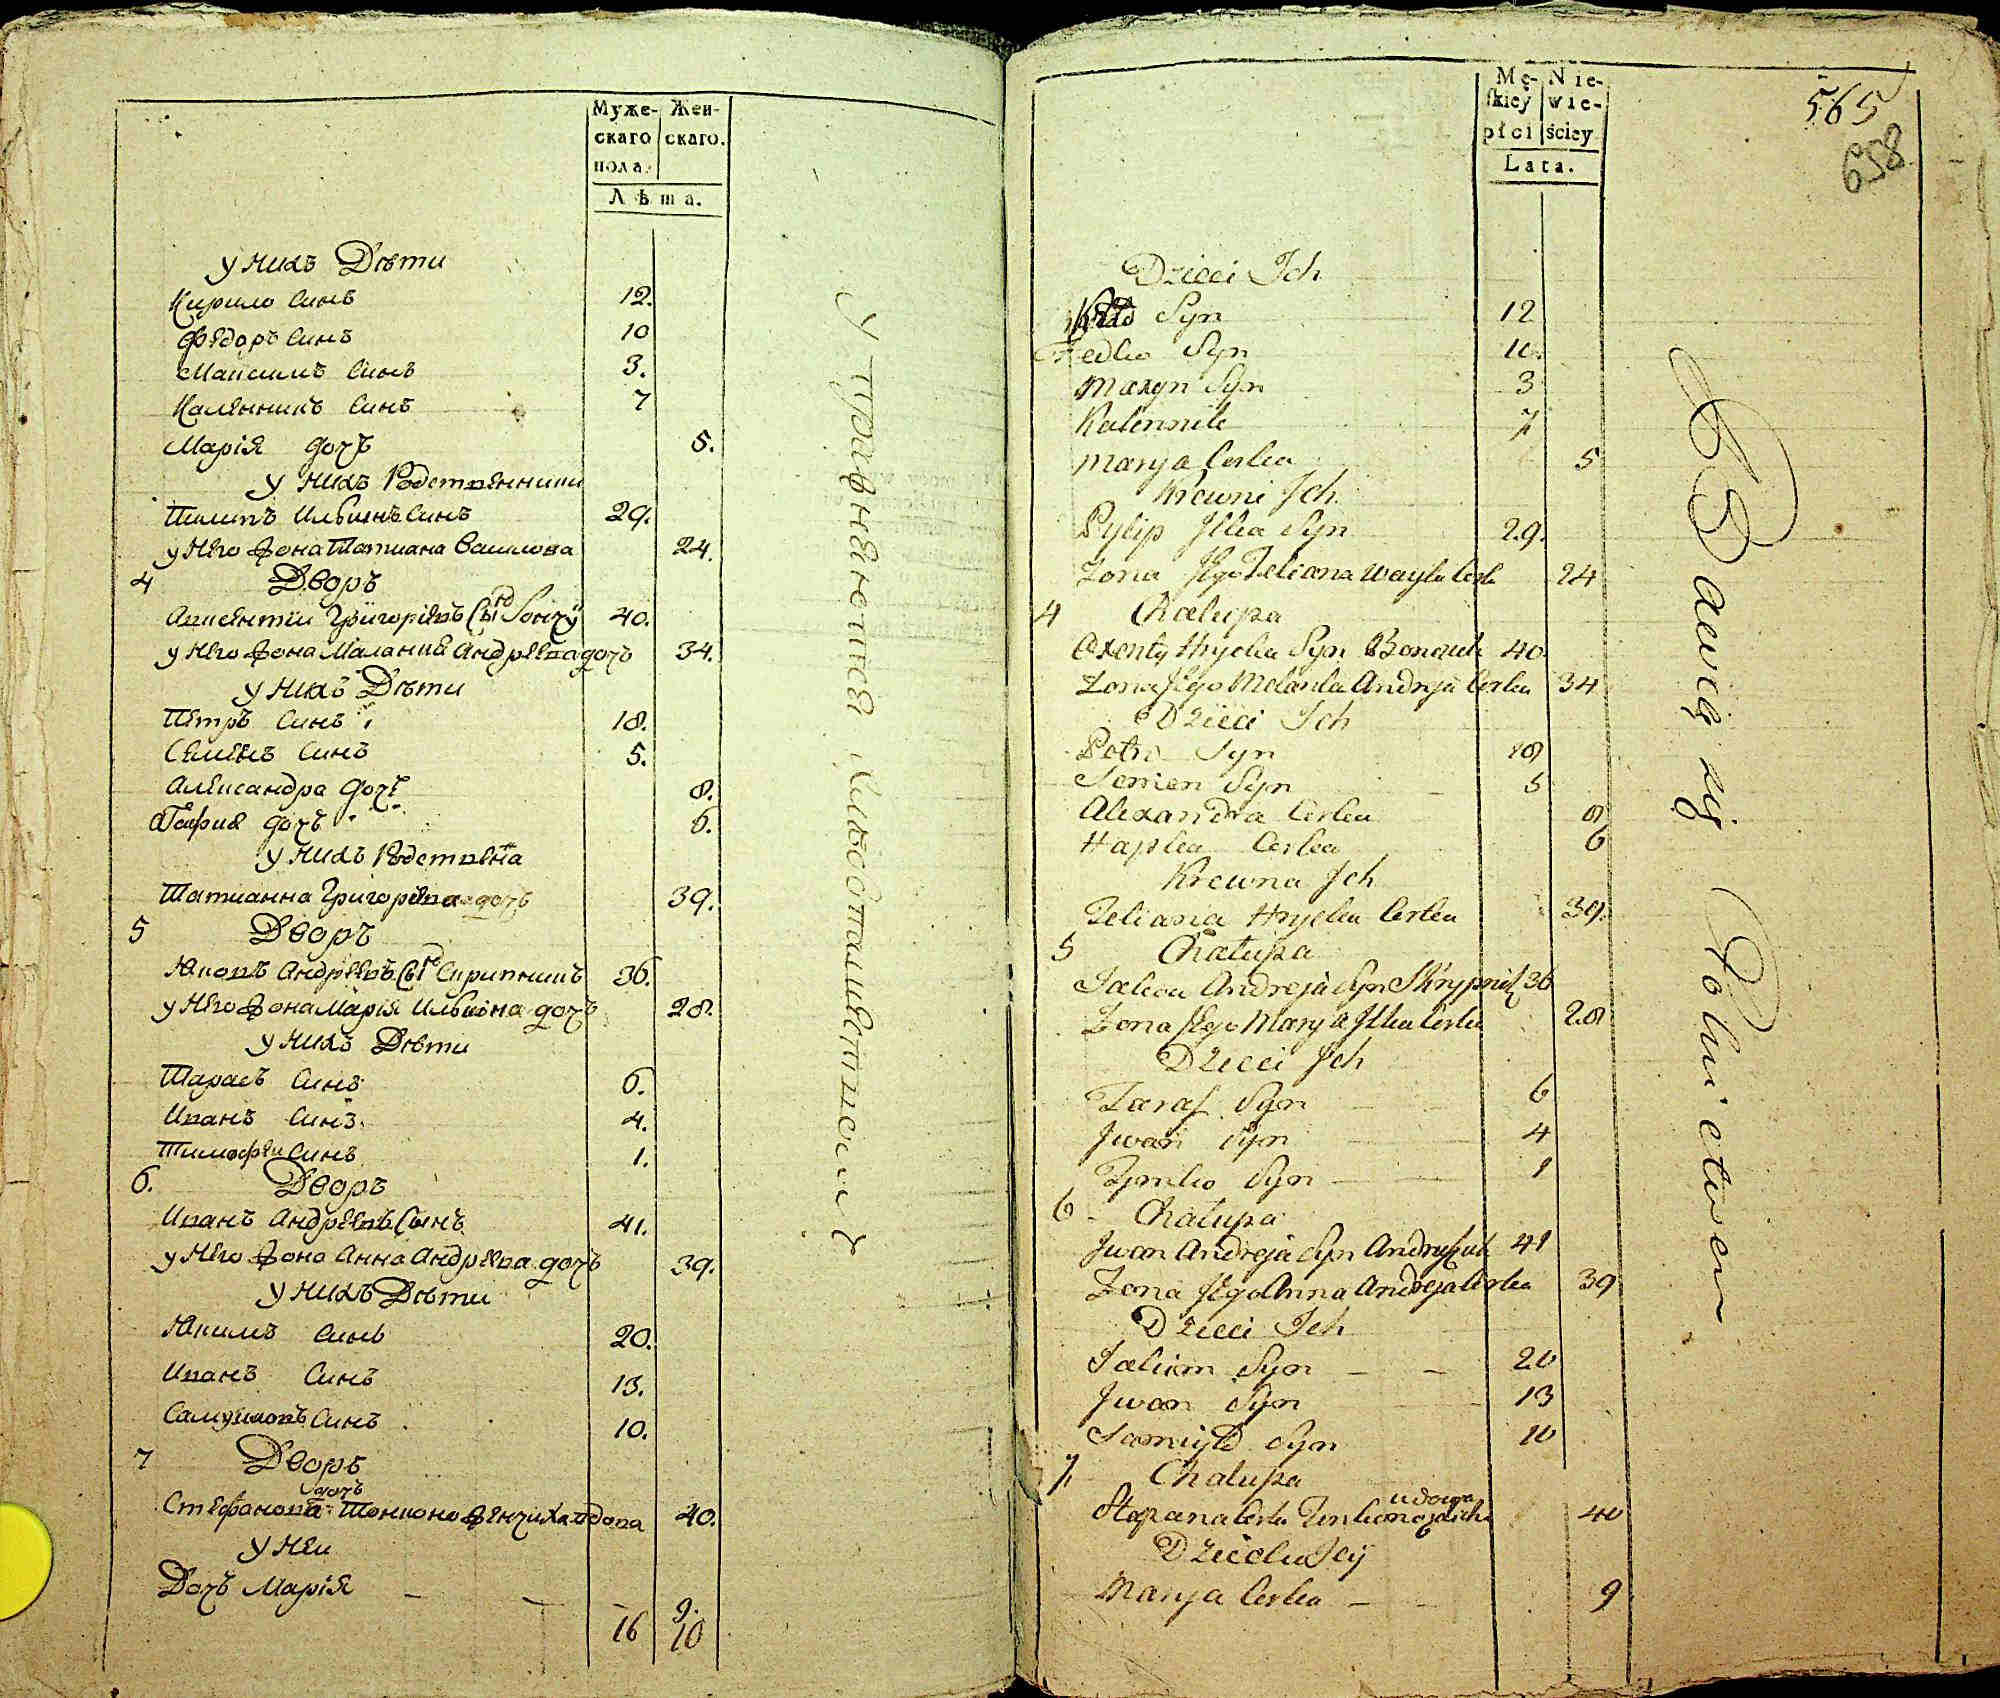 Муже- Жен-
скаго скаго.
пола.
Лѣта.
у нихъ Дѣти
Кирило Синъ 12.
Федоръ Синъ 10
Максимъ Синъ 3.
Каленникъ Синъ 7
Марія дочъ 5.
у нихъ Родственники
Пилипъ Илькинъ Синъ 29.
у Него Жона Татиана Василова 24.
4 Дворъ
Аксентии Григоріевъ Сынъ 40.
у Него Жона Малания Андрѣева дочъ 34.
у нихъ Дѣти
Петръ Синъ 18.
Семенъ Синъ 5.
Александра дочъ 8.
Гафия дочъ 6.
у нихъ Родствена
Татианна Григоріева дочъ 39.
5 Дворъ
Яковъ Андрѣевъ Сынъ Скрипникъ 36.
у Него Жона Марія Илькова дочъ 28.
у нихъ Дѣти
Тарасъ Синъ 6.
Иванъ Синъ 4.
Тимофеи Синъ 1.
6. Дворъ
Иванъ Андрѣевъ Сынъ 41.
у Него Жона Анна Андрѣева дочъ 39.
у нихъ Дѣти
Якимъ Синъ 20.
Иванъ Синъ 13.
Самуиловъ Синъ 10.
7 Дворъ
дочъ
Стефанова вдова 40.
у Неи
Дочъ Марія 9.
16 10
Упражняются хлебопашествомъ
565
658
Mę- Nie-
skiey wie-
płci ściey
Lata.
Dzieci Ich
Syn 12
Fedko Syn 10.
Maxym Syn 3
Kalennik 7
Marya Corka 5
Krewni Ich
Pylip Ilka Syn 29.
Zona Jego Teliana Wasyla Corka 24
4 Chalupa
Oxenty Hrycka Syn Bonczuk 40
Zona Jego Melanka Andreja Corka 34
Dzieci Ich
Petro Syn 18
Semen Syn 5
Alexandra Corka 8
Hapka Corka 6
Krewna Ich
Teliana Hrycka Corka 39.
5 Chalupa
Jakow Andreja Syn Skrypnik 36
Zona Jego Marya Ilka Corka 28
Dzieci Ich
Taras Syn 6
Jwan Syn 4
Tymko Syn 1
6 Chalupa
Jwan Andreja Syn Andruszuk 41
Zona Jego Anna Andreja Corka 39
Dzieci Ich
Jakim Syn 20
Jwan Syn 13
Samuylo Syn 10
7. Chalupa
udowa
Stepana Corka 40
Dziecko Jey
Marya Corka 9
Bawią się Rolnictwem